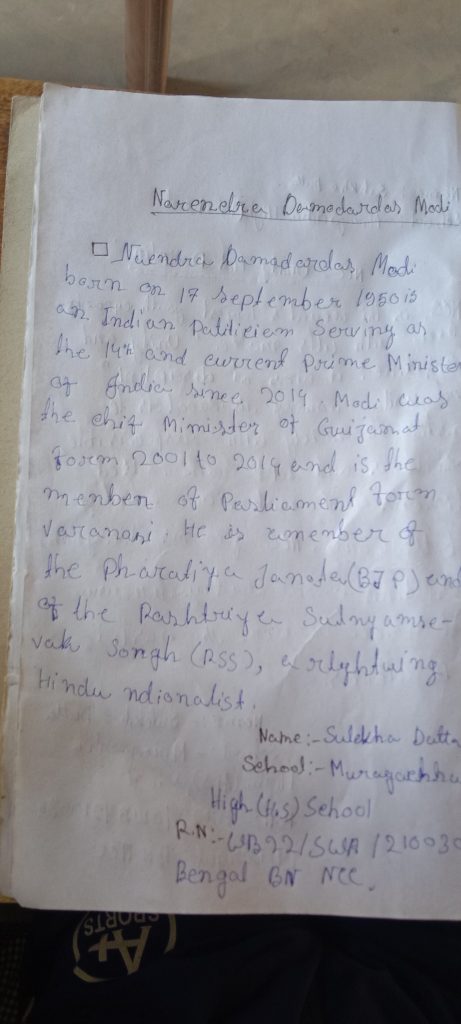 Narendra Damodardas Modi
Nuendra Damadardas, Modi
born on 17 September 1950 is
an Indian Patiliciem Serving as
the 14th and current Prime Minister
of India since 2014. Modi was
the chif Mimister of Guijamat
form 2001 to 2014 and is the
menber of Parliament form
varanani. He is amenber of
the Pharatiya Janata (BJP) and
of the Rashtriya Sulnyamse-
vak Songh (RSS), a rlghtwing
Hindu ndionalist.
Name:- Sulekha Datta
School:- Muragachha
High (H.S) School
R.N:- WB22/SWA/210030
Bengal BN NCC.
A+
SPORTS